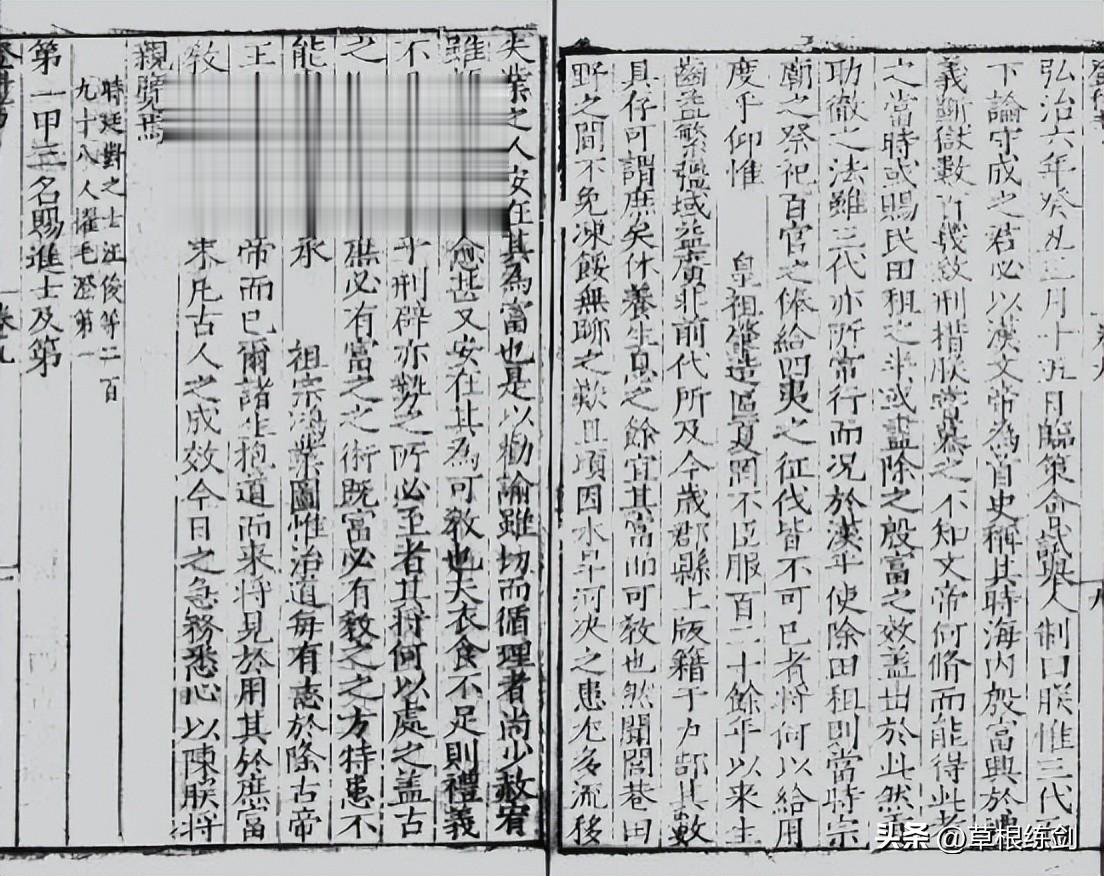 弘治六年癸丑三月十五日臨策命試舉人制曰朕惟三代而
下論守成之君必以漢文帝為首史稱其時海内殷富興於禮
義斷獄數百幾致刑措朕嘗慕之不知文帝何脩而能得此考
之當時或賜民田租之半或盡除之殷富之效盖出於此然
助徹之法雖三代亦所常行而况於漢乎使除田租則當時宗
廟之祭祀百官之俸給四夷之征伐皆不可已者將何以給用
度乎仰惟 皇祖肇造區夏罔不臣服百二十餘年以來生
齒益繁疆域益廣非前代所及今歲郡縣上版籍于户部其數
具存可謂庶矣休養生息之餘宜其富而可教也然閭閻巷田
野之間不免凍餒無聊之歎且頃因水旱河决之患尤多流移
失業之人安在其為富也是以勸諭雖切而循理者尚少赦宥
雖 愈甚又安在其為可教也夫衣食不足則禮義
不 乎刑辟亦勢之所必至者其將何以處之盖古
之 庶必有富之之術既富必有教之之方特患不
能 承 祖宗鴻業圖惟治道每有志於隆古帝
王 帝而已爾諸生抱道而来將見於用其於庶富
教 来凡古人之成效今日之急務悉心以陳朕將
親覽焉
時廷對之士汪俊等二百
九十八人擢毛澄第一
第一甲三名賜進士及第
头条 @草根练剑